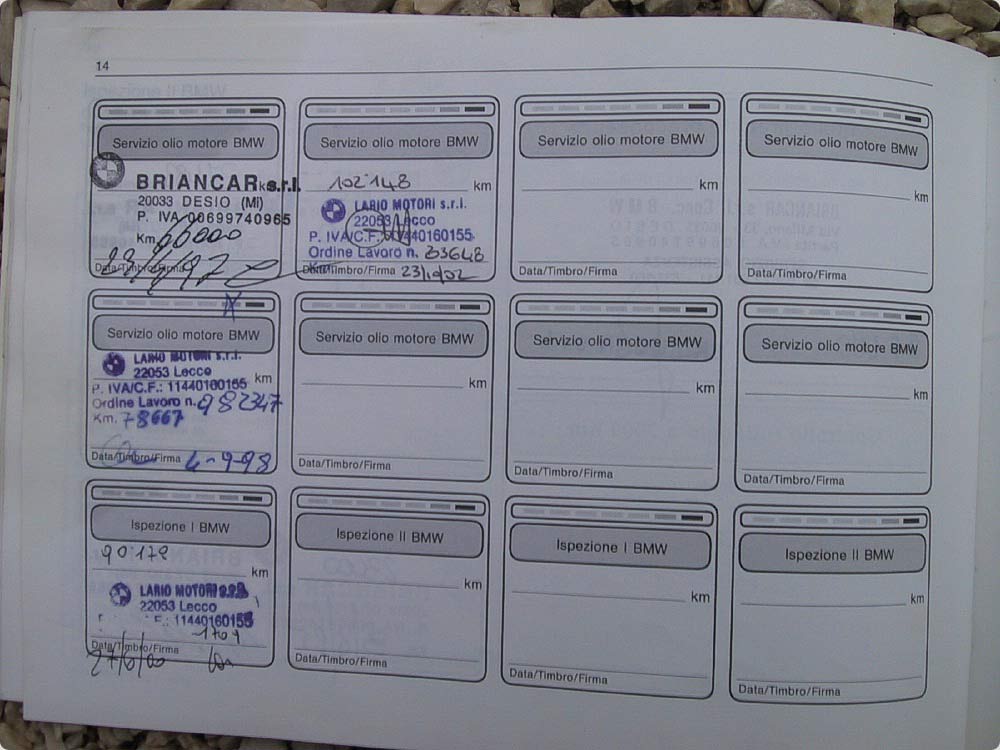 14
Servizio olio motore BMW
BRIANCAR s.r.l.
km
20033 DESIO (Mi)
P. IVA 00699740965
Km 60000
Data/Timbro/Firma
Servizio olio motore BMW
102148 km
LARIO MOTORI s.r.l.
22053 Lecco
P. IVA/C.F. 11440160155
Ordine Lavoro n. 33648
Data/Timbro/Firma
Servizio olio motore BMW
km
Data/Timbro/Firma
Servizio olio motore BMW
km
Data/Timbro/Firma
Servizio olio motore BMW
LARIO MOTORI s.r.l.
22053 Lecco
km
P. IVA/C.F.: 11440160155
Ordine Lavoro n. 982347
Km. 78667
Data/Timbro/Firma 4-9-98
Servizio olio motore BMW
km
Data/Timbro/Firma
Servizio olio motore BMW
km
Data/Timbro/Firma
Servizio olio motore BMW
km
Data/Timbro/Firma
Ispezione I BMW
90178
km
LARIO MOTORI
22053 Lecco
F.: 11440160155
1709
Data/Timbro/Firma
27/6/00
Ispezione II BMW
km
Data/Timbro/Firma
Ispezione I BMW
km
Data/Timbro/Firma
Ispezione II BMW
km
Data/Timbro/Firma